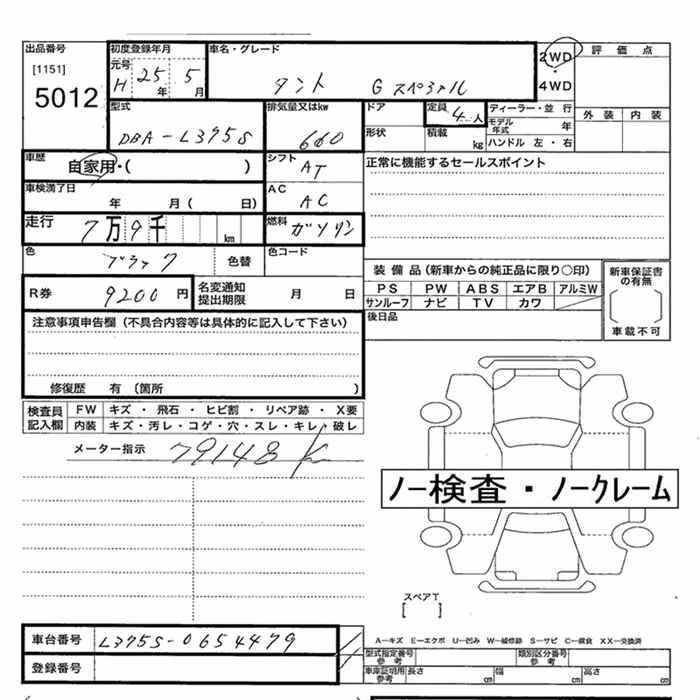 出品番号 初度登録年月 車名・グレード 2WD 評価点
[1151] 元号
5012 H 25年 5月 タント Gスペシャル 4WD
型式 排気量又はkw ドア 定員 4人 ディーラー・並行 外装 内装
DBA-L375S 660 形状 積載 kg モデル年式 年
ハンドル 左・右
車歴 自家用・( ) シフト AT 正常に機能するセールスポイント
車検満了日 年 月( 日) AC AC
走行 7万9千 km 燃料 ガソリン
色 ブラック 色替 色コード
装備品(新車からの純正品に限り○印) 新車保証書の有無
R券 9200円 名変通知提出期限 月 日 PS PW ABS エアB アルミW
サンルーフ ナビ TV カワ
注意事項申告欄(不具合内容等は具体的に記入して下さい) 後日品 車載不可
修復歴 有(箇所 )
検査員記入欄 FW キズ・飛石・ヒビ割・リペア跡・X要
内装 キズ・汚レ・コゲ・穴・スレ・キレ・破レ
メーター指示 79148K
ノー検査・ノークレーム
スペアT
[ ]
車台番号 L375S-0654479 A―キズ E―エクボ U―凹み W―補修跡 S―サビ C―腐食 XX―交換済
型式指定番号 参考 類別区分番号 参考
登録番号 車庫証明用 参考 長さ cm 幅 cm 高さ cm